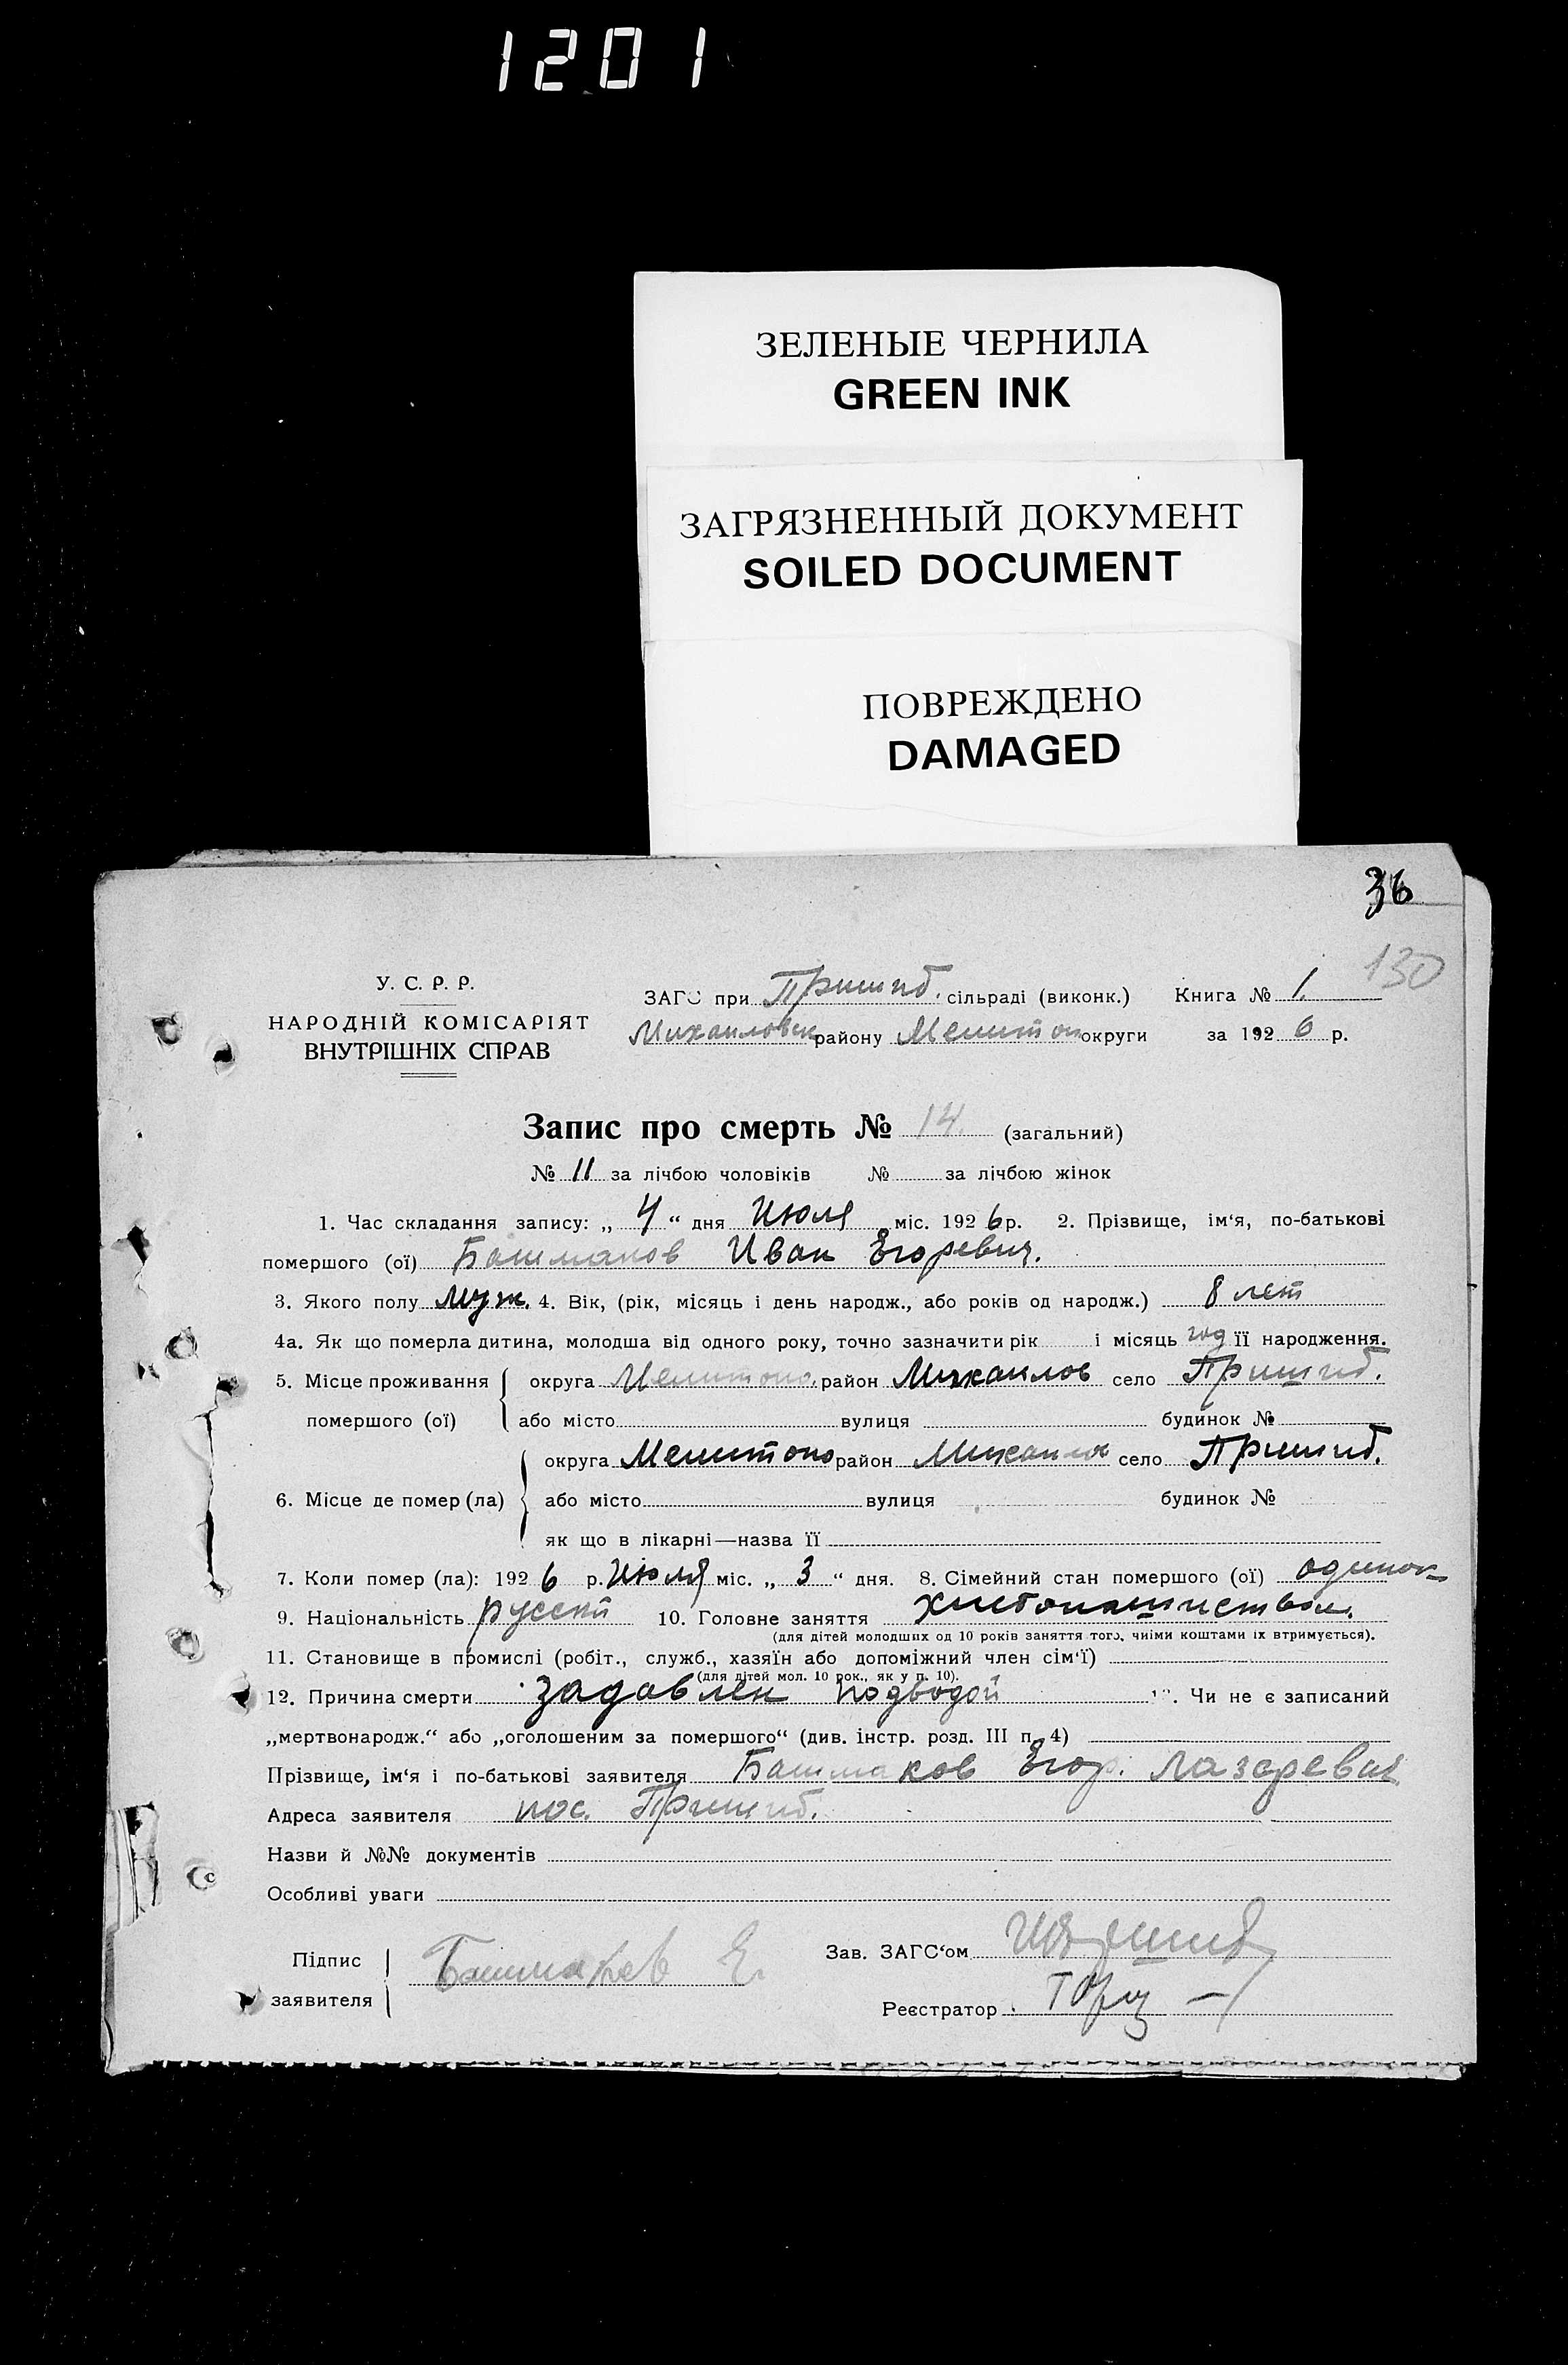 1201
ЗЕЛЕНЫЕ ЧЕРНИЛА
GREEN INK
ЗАГРЯЗНЕННЫЙ ДОКУМЕНТ
SOILED DOCUMENT
ПОВРЕЖДЕНО
DAMAGED
36
130
У. С. Р. Р.
НАРОДНІЙ КОМІСАРІЯТ
ВНУТРІШНІХ СПРАВ
ЗАГС при Пришиб. сільраді (виконк.) Книга № 1.
Михаиловск району Мелитоп округи за 1926 р.
Запис про смерть № 14. (загальний)
№ 11 за лічбою чоловіків № за лічбою жінок
1. Час складання запису: „ 4 “ дня Июля міс. 1926 р. 2. Прізвище, ім‘я, по-батькові
помершого (ої) Башмаков Иван Егоревич.
3. Якого полу муж. 4. Вік, (рік, місяць і день народж., або років од народж.) 8 лет
4а. Як що померла дитина, молодша від одного року, точно зазначити рік і місяць год її народження.
5. Місце проживання округа Мелитопо. район Михаилов село Пришиб.
помершого (ої) або місто вулиця будинок №
округа Мелитопо район Михаилов село Пришиб.
6. Місце де помер (ла) або місто вулиця будинок №
як що в лікарні—назва її
7. Коли помер (ла): 1926 р. Июля міс. „ 3 “ дня. 8. Сімейний стан помершого (ої) одинок
9. Національність русский 10. Головне заняття хлебопашиством.
(для дітей молодших од 10 років заняття того, чиїми коштами їх втримується).
11. Становище в промислі (робіт., служб., хазяїн або допоміжний член сім‘ї)
(для дітей мол. 10 рок., як у п. 10).
12. Причина смерти задавлен подводой . Чи не є записаний
„мертвонародж.“ або „оголошеним за помершого“ (див. інстр. розд. III п. 4)
Прізвище, ім‘я і по-батькові заявителя Башмаков Егор. Лазаревич
Адреса заявителя пос. Пришиб.
Назви й №№ документів
Особливі уваги
Підпис заявителя Башмаков Е.
Зав. ЗАГС‘ом
Реєстратор